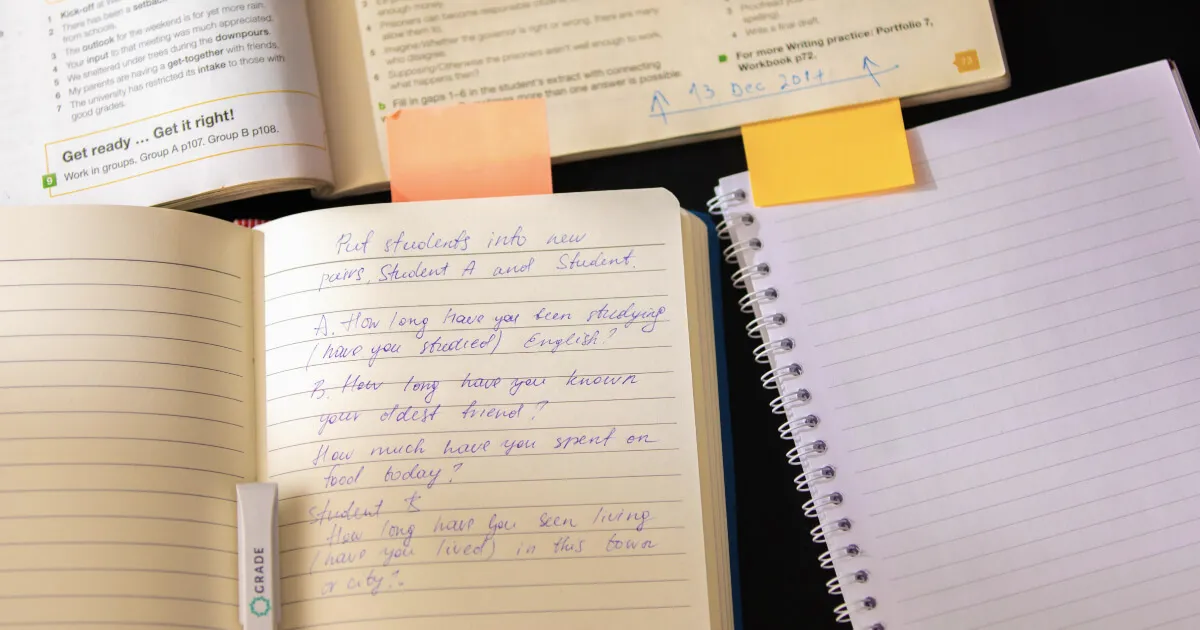 1 Kick-off at
2 There has been a setba
from schools.
3 The outlook for the weekend is for yet more rain.
4 Your input to that meeting was much appreciated.
5 We sheltered under trees during the downpours.
6 My parents are having a get-together with friends.
7 The university has restricted its intake to those with
good grades.
Get ready ... Get it right!
9 Work in groups. Group A p107. Group B p108.
enough money.
4 Prisoners can become responsible
allow them to.
5 Imagine/Whether the governor is right or wrong, there are many
who disagree.
6 Supposing/Otherwise the prisoners aren't well enough to work,
what happens then?
b Fill in gaps 1–6 in the student's extract with connecting
more than one answer is possible.
3 Proofread your
spelling).
4 Write a final draft.
For more Writing practice: Portfolio 7,
Workbook p72.
73
13 Dec 2017
Put students into new
pairs, Student A and Student.
A. How long have you been studying
(have you studied) English?
B. How long have you known
your oldest friend?
How much have you spent on
food today?
Student B
How long have you been living
(have you lived) in this town
or city?
GRADE